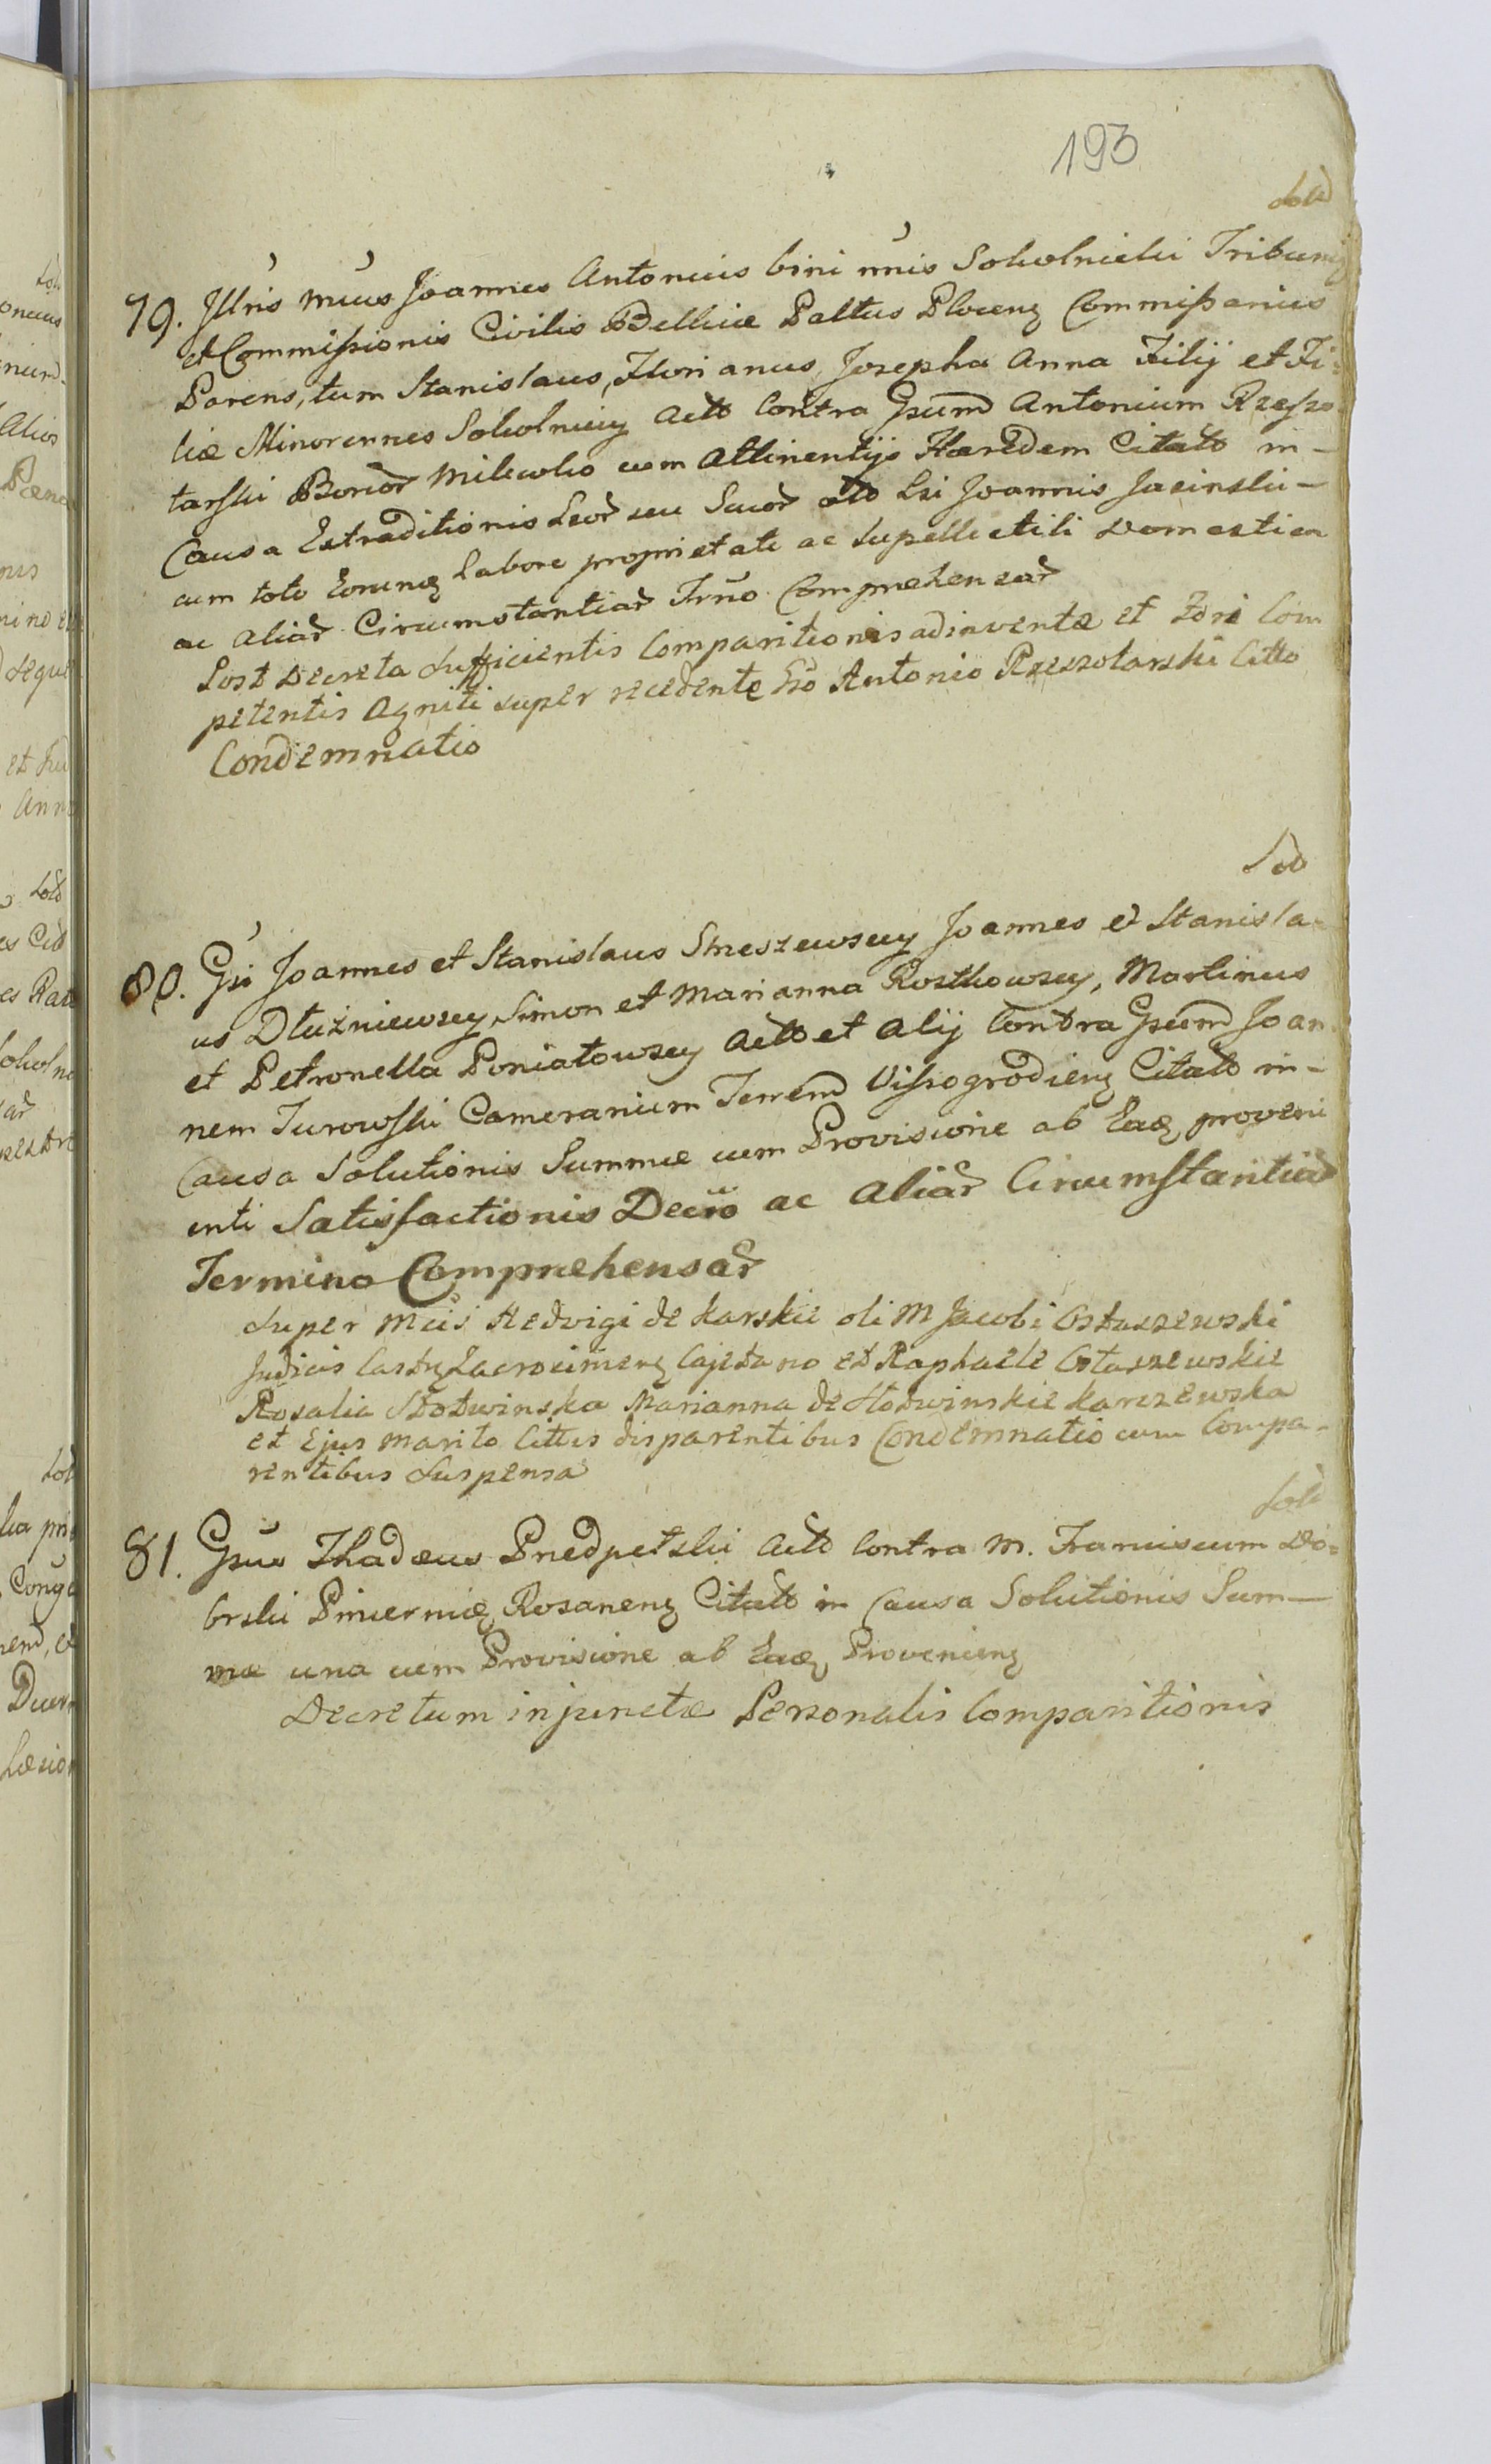 193
Sold
79. Jllris mcus Joannes Antonius bini nnis Sokolnicki Tribunis
et Commissionis Civilis Bellicæ Paltus Plocenꝫ Commissarius
Parens, tum Stanislaus, Florianus, Josepha Anna Filij et Fi=
liæ Minorennes Sokolniccy Actto Contra Gsum Antonium Rzeszo
tarski Bonor Milewko cum Attinentijs Hæredem Citato in-
Causa Extraditionis Lsor seu Suor atto Lsi Joannis Jasinski-
cum toto Eorumꝫ Labore proprietate ac Supellectili Domestica
ac Aliar Circumstantiar Trno Comprehensar
Post Decreta Sufficientis Comparitionis adinventæ et Fori Com
petentis Agniti super recedente Gso Antonio Rzeszotarski Citto
Condemnatio
Sold
80. Gsi Joannes et Stanislaus Smeszewscy Joannes et Stanisla-
us Dłużniewscy, Simon et Marianna Rostkowscy, Martinus
et Petronella Poniatowscy Actto et Alij Contra Gsum Joan
nem Turowski Camerarium Terrem Vissogrodienꝫ Citato in-
Causa Solutionis Summæ cum Provisione ab Eaꝫ proveni
enti Satisfactionis Decro ac Aliar Circumstantiar
Termino Comprehensar
Super Mcis Hedvigi de Karskie oli M Jacobi Ostaszewski
Judicis Castꝫ Zacrocimenꝫ Cajetano et Raphaele Ostaszewskie
Rosalia Słotwinska Marianna de Słotwinskie Karczewska
et Ejus marito Cittis disparentibus Condemnatio cum Compa-
rentibus Suspensa
Sold
81. Gsus Thadæus Przedpełski Actto Contra M. Franciscum Do=
brski Pincernæ Rosanenꝫ Citato in Causa Solutionis Sum-
mæ una cum Provisione ab Eaꝫ Provenienꝫ
Decretum injunctæ Personalis Comparitionis